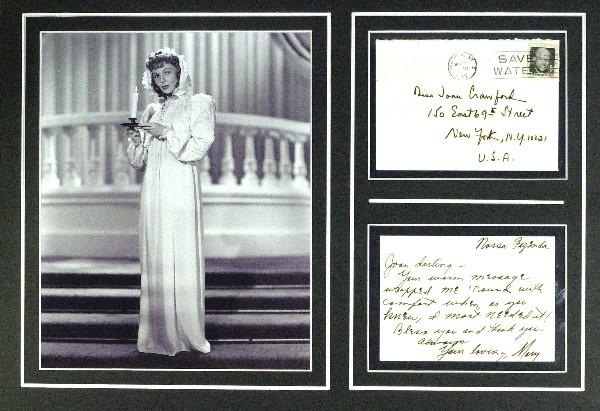 SAVE
WATER
Miss Joan Crawford
150 East 69th Street
New York, N.Y. 10021
U.S.A.
Nossa Fazenda
Joan darling -
Your warm message
wrapped me 'round with
comfort when, as you
knew, I most needed it!
Bless you and thank you.
always
Your loving, Mary